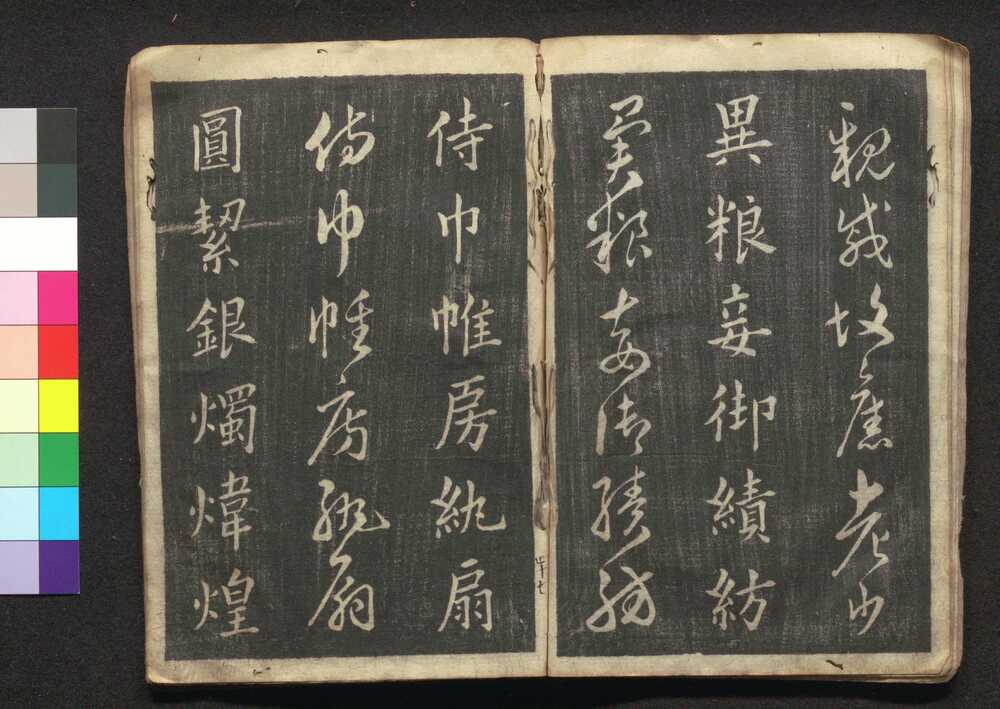 親戚故舊老少
異粮妾御績紡
異粮妾御績紡
侍巾帷房紈扇
侍巾帷房紈扇
圓絜銀燭煒煌